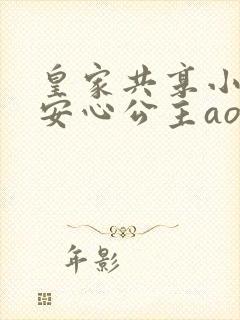 皇家共享小
安心公主ao
年影